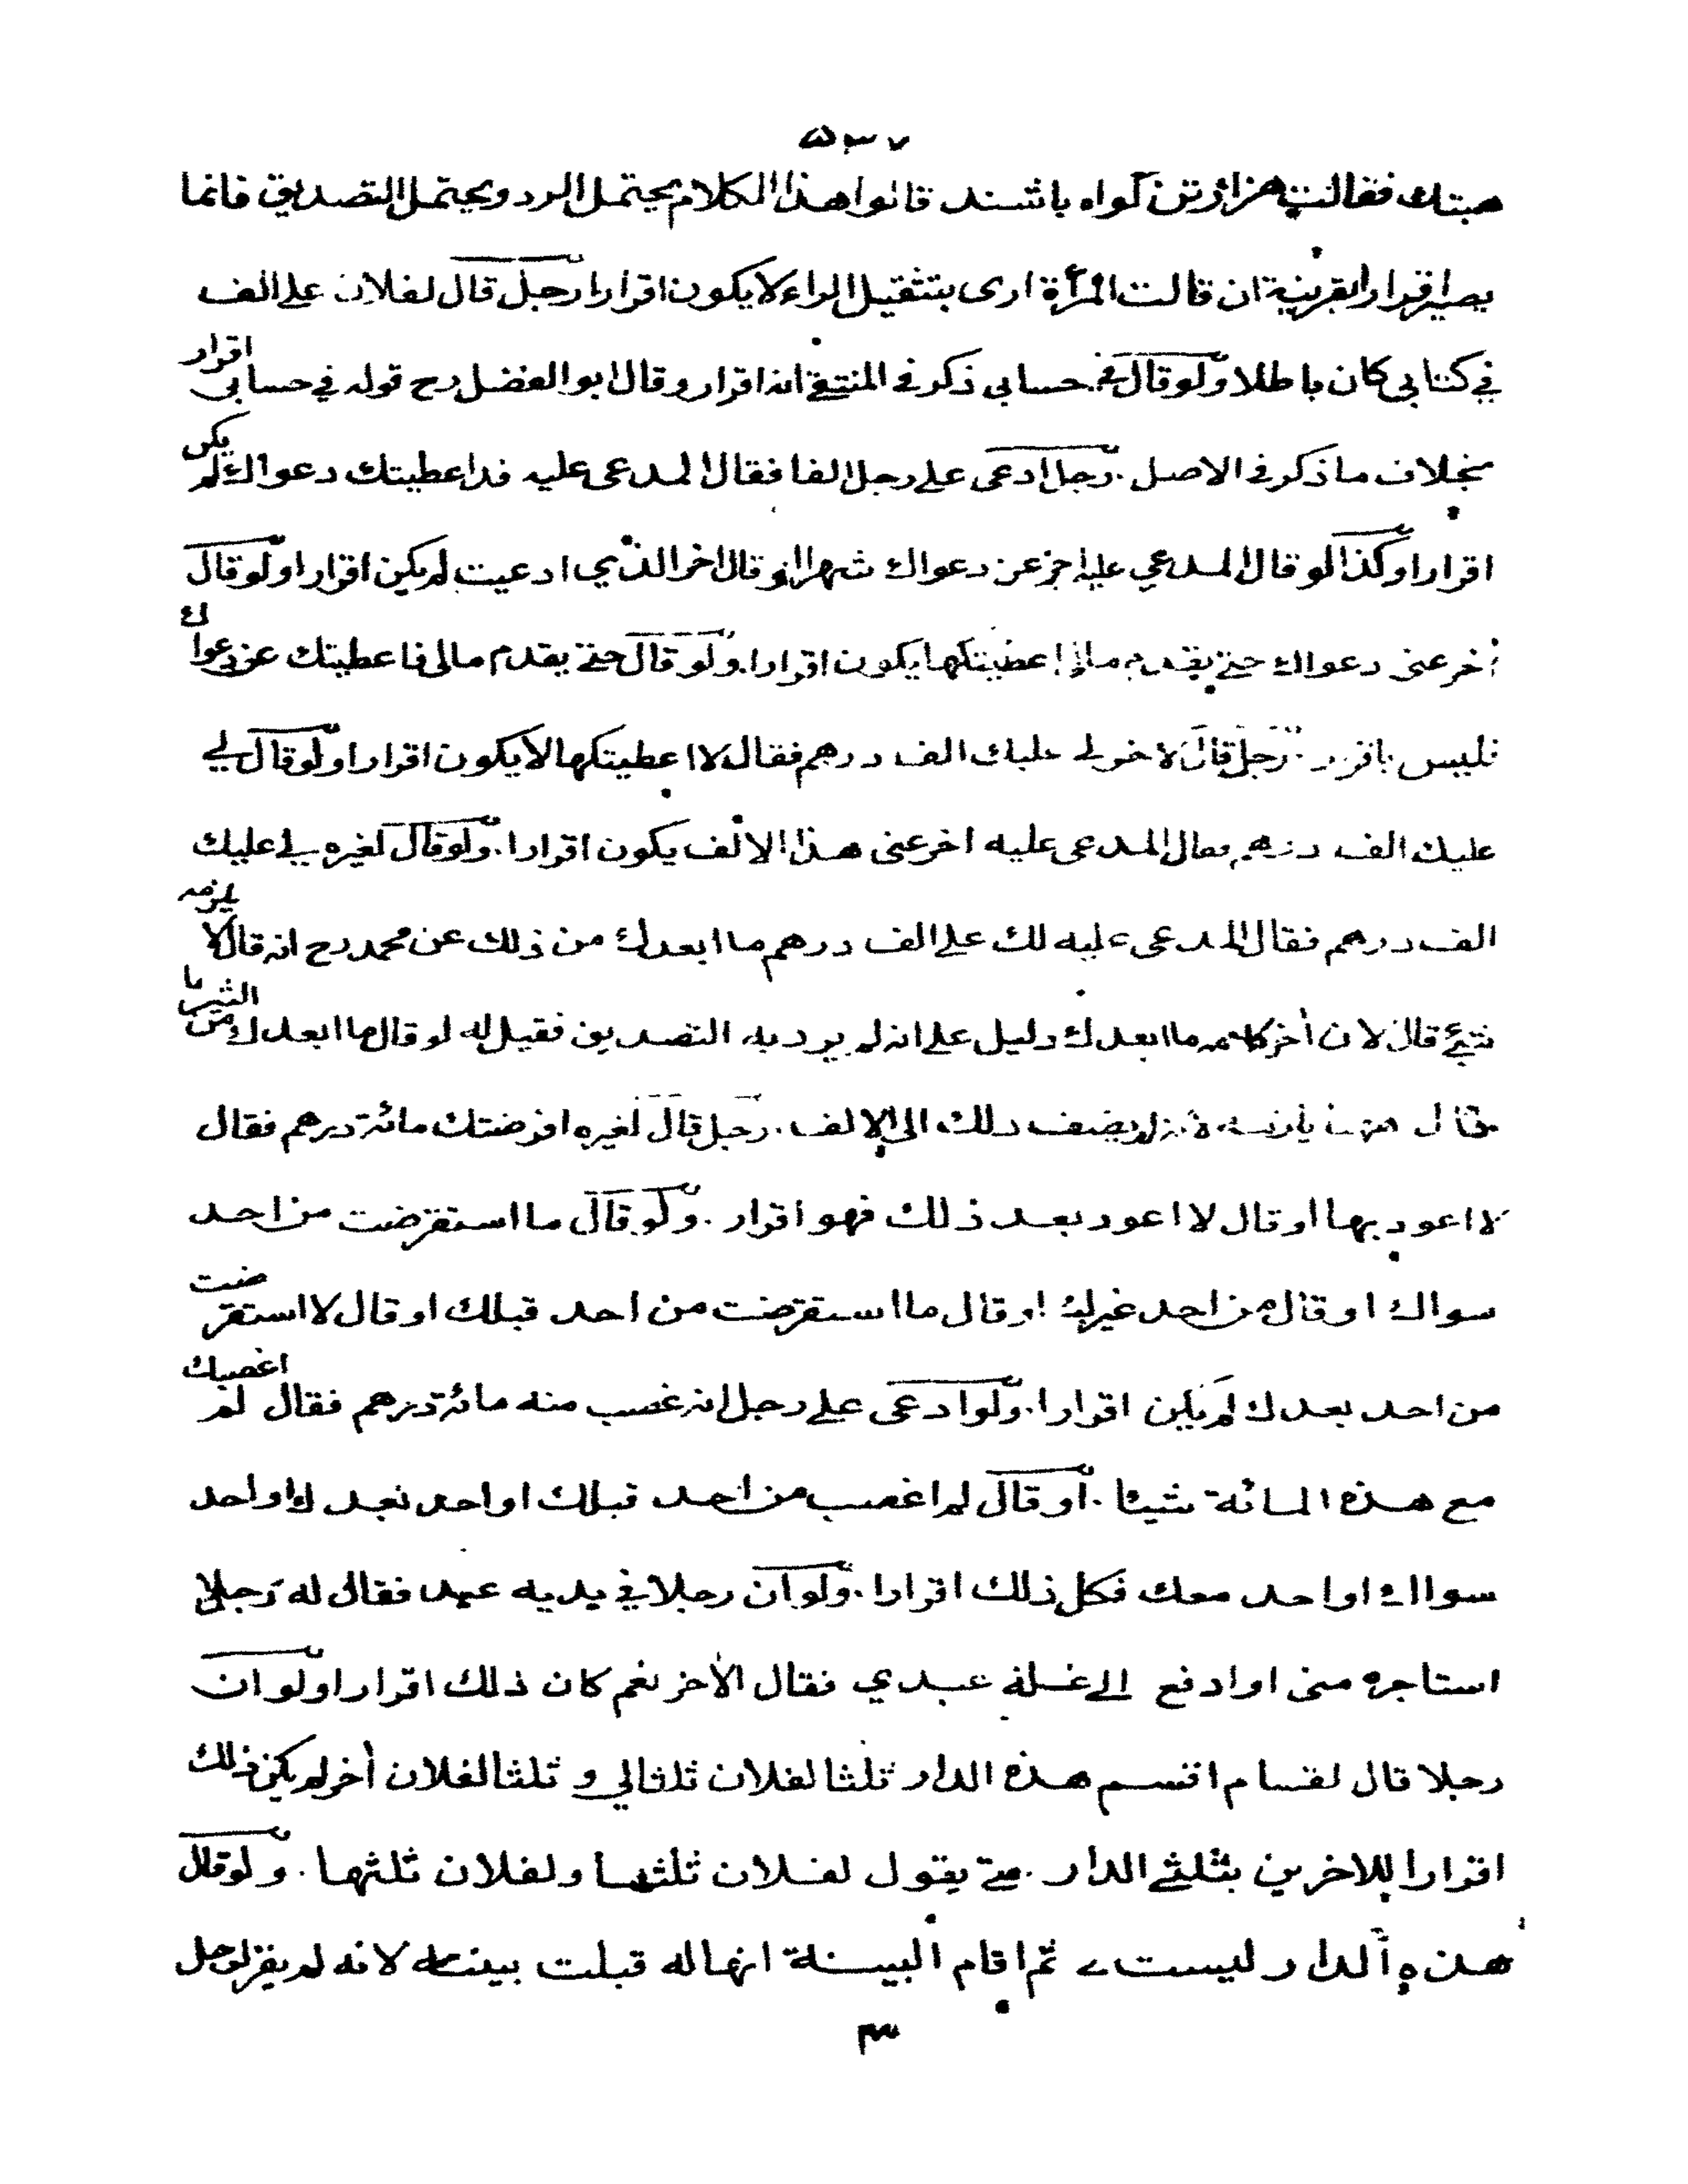 ٥٣٧
هبتك فقالت هزار تن كواه باشند قالوا هذا الكلام يحتمل الرد ويحتمل التصديق فانما
يصير اقرارا بقرينة ان قالت المرأة ارى بتثقيل الراء لا يكون اقرارا رجل قال لفلان على الف
في كتابي كان باطلا ولو قال في حسابي ذكر في المنتقى انه اقرار وقال ابو الفضل رح قوله في حسابي اقرار
بخلاف ما ذكر في الاصل . رجل ادعى على رجل الفا فقال المدعى عليه قد اعطيتك دعواك لم يكن
اقرارا وكذا لو قال المدعي عليه اخر عن دعواك شهرا او قال اخر الذي ادعيت لم يكن اقرارا ولو قال
أخر عنى دعواك حتى يقدم مالي اعطيتكها يكون اقرارا . ولو قال حتى يقدم مالى فاعطيتك عن دعواك
فليس باقرار . رجل قال لاخر لى عليك الف درهم فقال لا اعطيتكها لا يكون اقرارا ولو قال لي
عليك الف درهم فقال المدعى عليه اخر عنى هذا الالف يكون اقرارا . ولو قال لغيره لي عليك
الف درهم فقال المدعى عليه لك على الف درهم ما ابعدك من ذلك عن محمد رح انه قال لا يلزمه
شئ قال لان أخر كلامه ما ابعدك دليل على انه لم يرد به التصديق فقيل له لو قال ما ابعدك من الثريا
فقال لانه لم يضف ذلك الى الالف . رجل قال لغيره اقرضتك مائة درهم فقال
لا اعود بها او قال لا اعود بعد ذلك فهو اقرار . ولو قال ما استقرضت من احد
سواك او قال من احد غيرك او قال ما استقرضت من احد قبلك او قال لا استقرضت
من احد بعدك لم يكن اقرارا . ولو ادعى على رجل انه غصب منه مائة درهم فقال لم اغصبك
مع هذه المائة شيئا . او قال لم اغصب من احد قبلك او احد بعدك او احد
سواك او احد معك فكل ذلك اقرارا . ولو ان رجلا في يديه عبد فقال له رجل
استاجره منى او ادفع الى غلة عبدي فقال الأخر نعم كان ذلك اقرارا ولو ان
رجلا قال لقسام اقسم هذه الدار ثلثا لفلان ثلثا لي و ثلثا لفلان أخر لم يكن ذلك
اقرارا للاخرين بثلثى الدار . حتى يقول لفلان ثلثها ولفلان ثلثها . ولو قال
هذه الدار ليست لي ثم اقام البينة انها له قبلت بينته لانه لم يقر لرجل